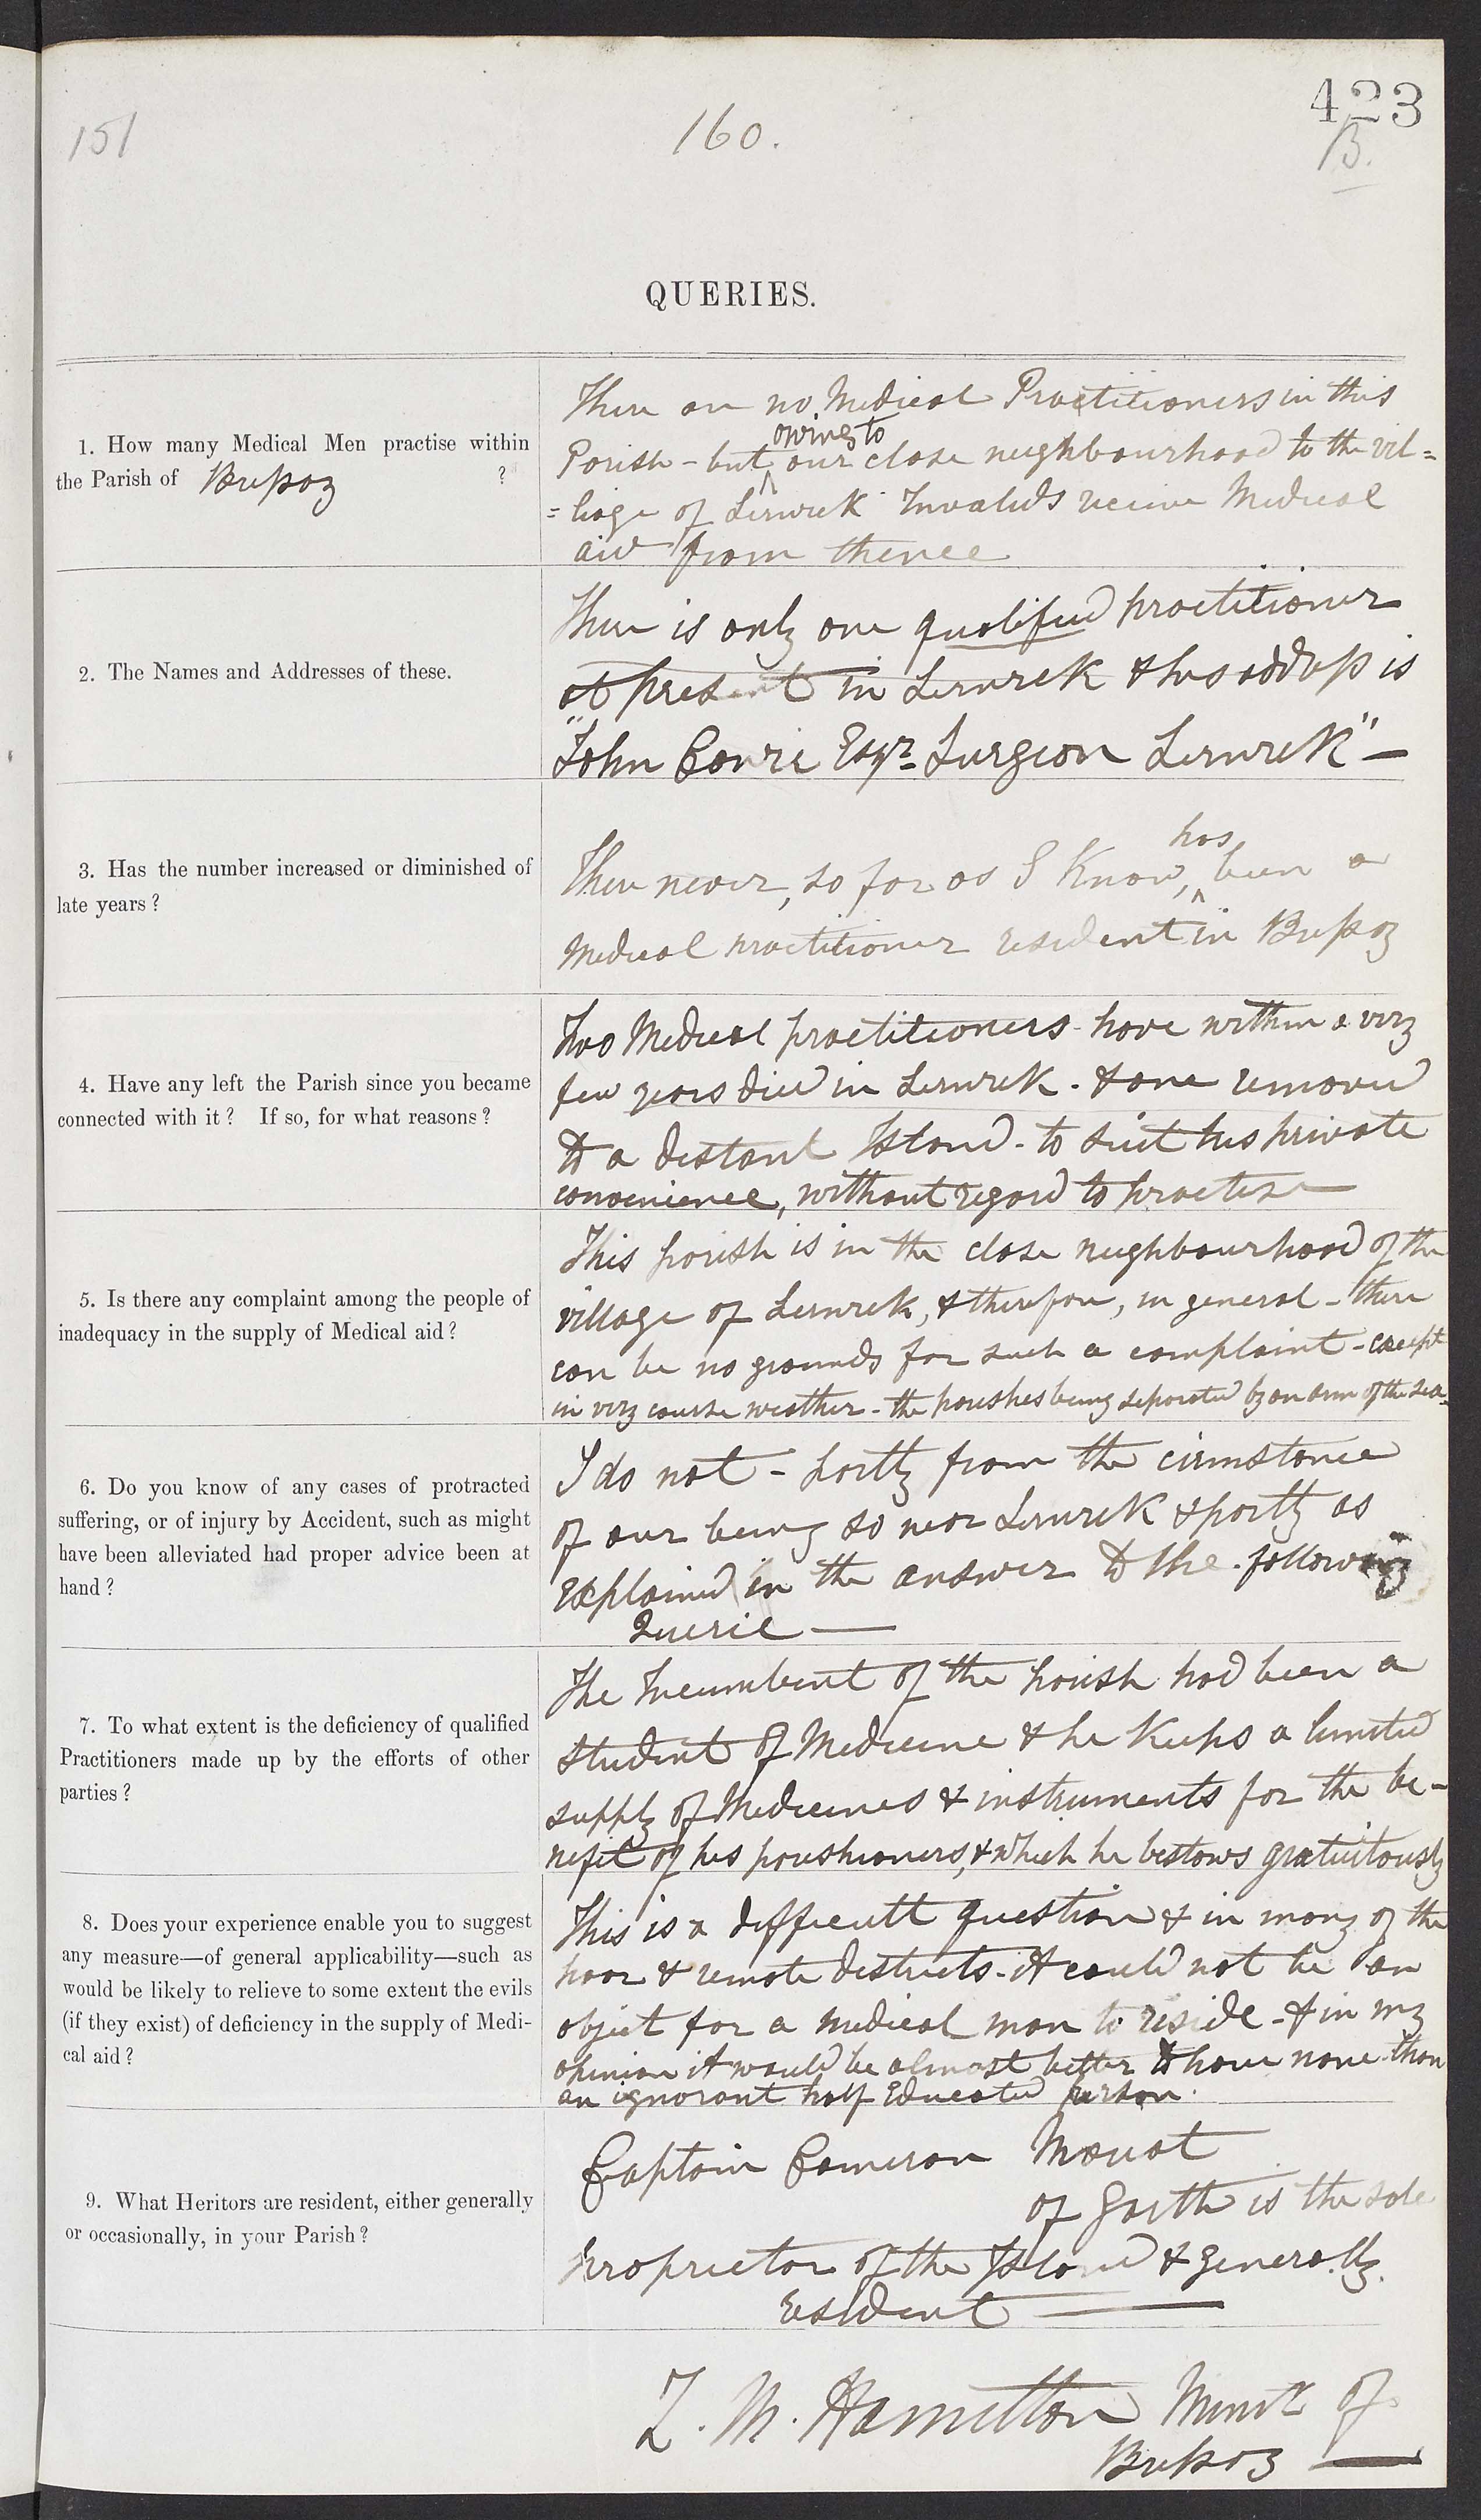 151
160.
423
B.
QUERIES.
1. How many Medical Men practise within
the Parish of Bressay ?
There are no Medical Practitioners in this
Parish - but owing to our close neighbourhood to the vil=
=lage of Lerwick Invalids receive Medical
aid from thence
2. The Names and Addresses of these.
There is only one qualified practitioner
at present in Lerwick & his address is
"John Cowie Esqr. Surgeon Lerwick" —
3. Has the number increased or diminished of
late years?
There never, so far as I know, has been a
Medical practitioner resident in Bressay
4. Have any left the Parish since you became
connected with it? If so, for what reasons?
Two Medical practitioners have within a very
few years died in Lerwick - & one removed
to a distant Island - to suit his private
convenience, without regard to practise —
5. Is there any complaint among the people of
inadequacy in the supply of Medical aid?
This parish is in the close neighbourhood of the
village of Lerwick, & therefore, in general - there
can be no grounds for such a complaint - except
in very course weather - the parishes being separated by an arm of the sea.
6. Do you know of any cases of protracted
suffering, or of injury by Accident, such as might
have been alleviated had proper advice been at
hand?
I do not - partly from the cirmstance
of our being so near Lerwick & partly as
explained in the answer to the following
Querie —
7. To what extent is the deficiency of qualified
Practitioners made up by the efforts of other
parties?
The Incumbent of the parish had been a
student of Medicine & he keeps a limited
supply of Medicines & instruments for the be-
nefit of his parishioners, & which he bestows gratuitously
8. Does your experience enable you to suggest
any measure—of general applicability—such as
would be likely to relieve to some extent the evils
(if they exist) of deficiency in the supply of Medi-
cal aid?
This is a difficult question & in many of the
poor & remote districts - it could not be an
object for a medical man to reside - & in my
opinion it would be almost better to have none than
an ignorant half educated person.
9. What Heritors are resident, either generally
or occasionally, in your Parish?
Captain Cameron Mouat
of Garth is the sole
proprietor of the Island & generally
resident —
Z. M. Hamilton Minr. of
Bressay —